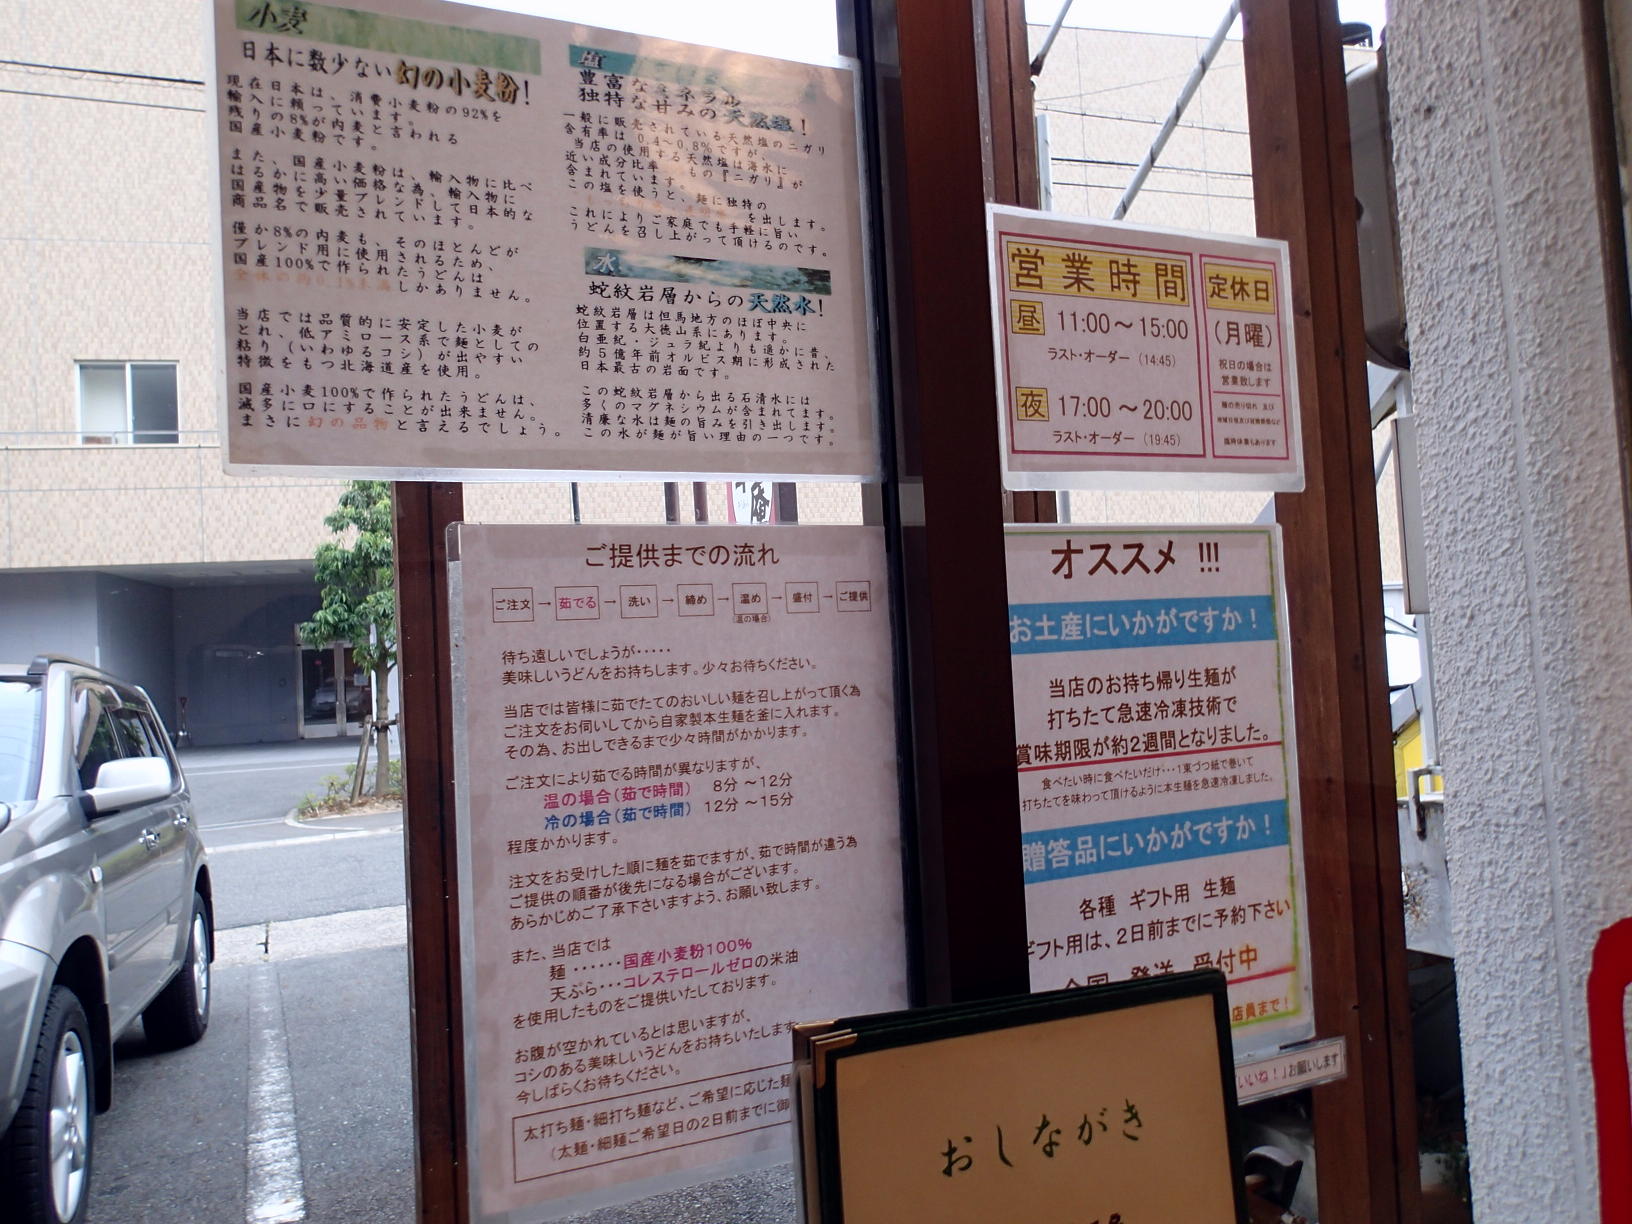 小麦
日本に数少ない幻の小麦粉!
現在日本は、消費小麦粉の92%を
輸入に頼っています。
残りの8%が内麦と言われる
国産小麦粉です。
また、国産小麦粉は、輸入物に比べ
はるかに高い価格な為、輸入物に
国産物を少量ブレンドして日本的な
商品名で販売されています。
僅か8%の内麦も、そのほとんどが
ブレンド用に使用されるため、
国産100%で作られたうどんは
全体の約0.1%未満しかありません。
当店では品質的に安定した小麦が
とれ、低アミロース系で麺としての
粘り(いわゆるコシ)が出やすい
特徴をもつ北海道産を使用。
国産小麦100%で作られたうどんは、
滅多に口にすることが出来ません。
まさに幻の品物と言えるでしょう。
塩
豊富なミネラル
独特な甘みの天然塩!
一般に販売されている天然塩のニガリ
含有率は0.4〜0.8%ですが、
当店の使用する天然塩は海水に
近い成分比率 もの『ニガリ』が
含まれています。
この塩を使うと、麺に独特の
を出します。
これによりご家庭でも手軽に旨い
うどんを召し上がって頂けるのです。
水
蛇紋岩層からの天然水!
蛇紋岩層は但馬地方のほぼ中央に
位置する大徳山系にあります。
白亜紀・ジュラ紀よりも遥かに昔、
約5億年前オルビス期に形成された
日本最古の岩面です。
この蛇紋岩層から出る石清水には
多くのマグネシウムが含まれてます。
清廉な水は麺の旨みを引き出します。
この水が麺が旨い理由の一つです。
営業時間
昼 11:00〜15:00
ラスト・オーダー (14:45)
夜 17:00〜20:00
ラスト・オーダー (19:45)
定休日
(月曜)
祝日の場合は
営業致します
麺の売り切れ 及び
臨時休業もあります
ご提供までの流れ
ご注文→茹でる→洗い→締め→温め→盛付→ご提供
(温の場合)
待ち遠しいでしょうが・・・・・
美味しいうどんをお持ちします。少々お待ちください。
当店では皆様に茹でたてのおいしい麺を召し上がって頂く為
ご注文をお伺いしてから自家製本生麺を釜に入れます。
その為、お出しできるまで少々時間がかかります。
ご注文により茹でる時間が異なりますが、
温の場合(茹で時間) 8分〜12分
冷の場合(茹で時間) 12分〜15分
程度かかります。
注文をお受けした順に麺を茹でますが、茹で時間が違う為
ご提供の順番が後先になる場合がございます。
あらかじめご了承下さいますよう、お願い致します。
また、当店では
麺・・・・・・国産小麦粉100%
天ぷら・・・コレステロールゼロの米油
を使用したものをご提供いたしております。
お腹が空かれているとは思いますが、
コシのある美味しいうどんをお持ちいたします
今しばらくお待ちください。
太打ち麺・細打ち麺など、ご希望に応じた麺
(太麺・細麺ご希望日の2日前までに御
オススメ !!!
お土産にいかがですか!
当店のお持ち帰り生麺が
打ちたて急速冷凍技術で
賞味期限が約2週間となりました。
食べたい時に食べたいだけ・・・1束づつ紙で巻いて
打ちたてを味わって頂けるように本生麺を急速冷凍しました。
贈答品にいかがですか!
各種 ギフト用 生麺
ギフト用は、2日前までに予約下さい
全国 発送 受付中
店員まで!
いいね!」お願いします
おしながき